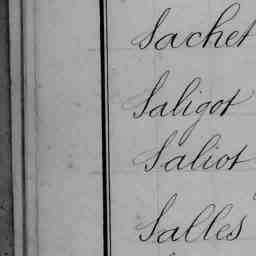 Sachet
Saligot
Saliot
Salles